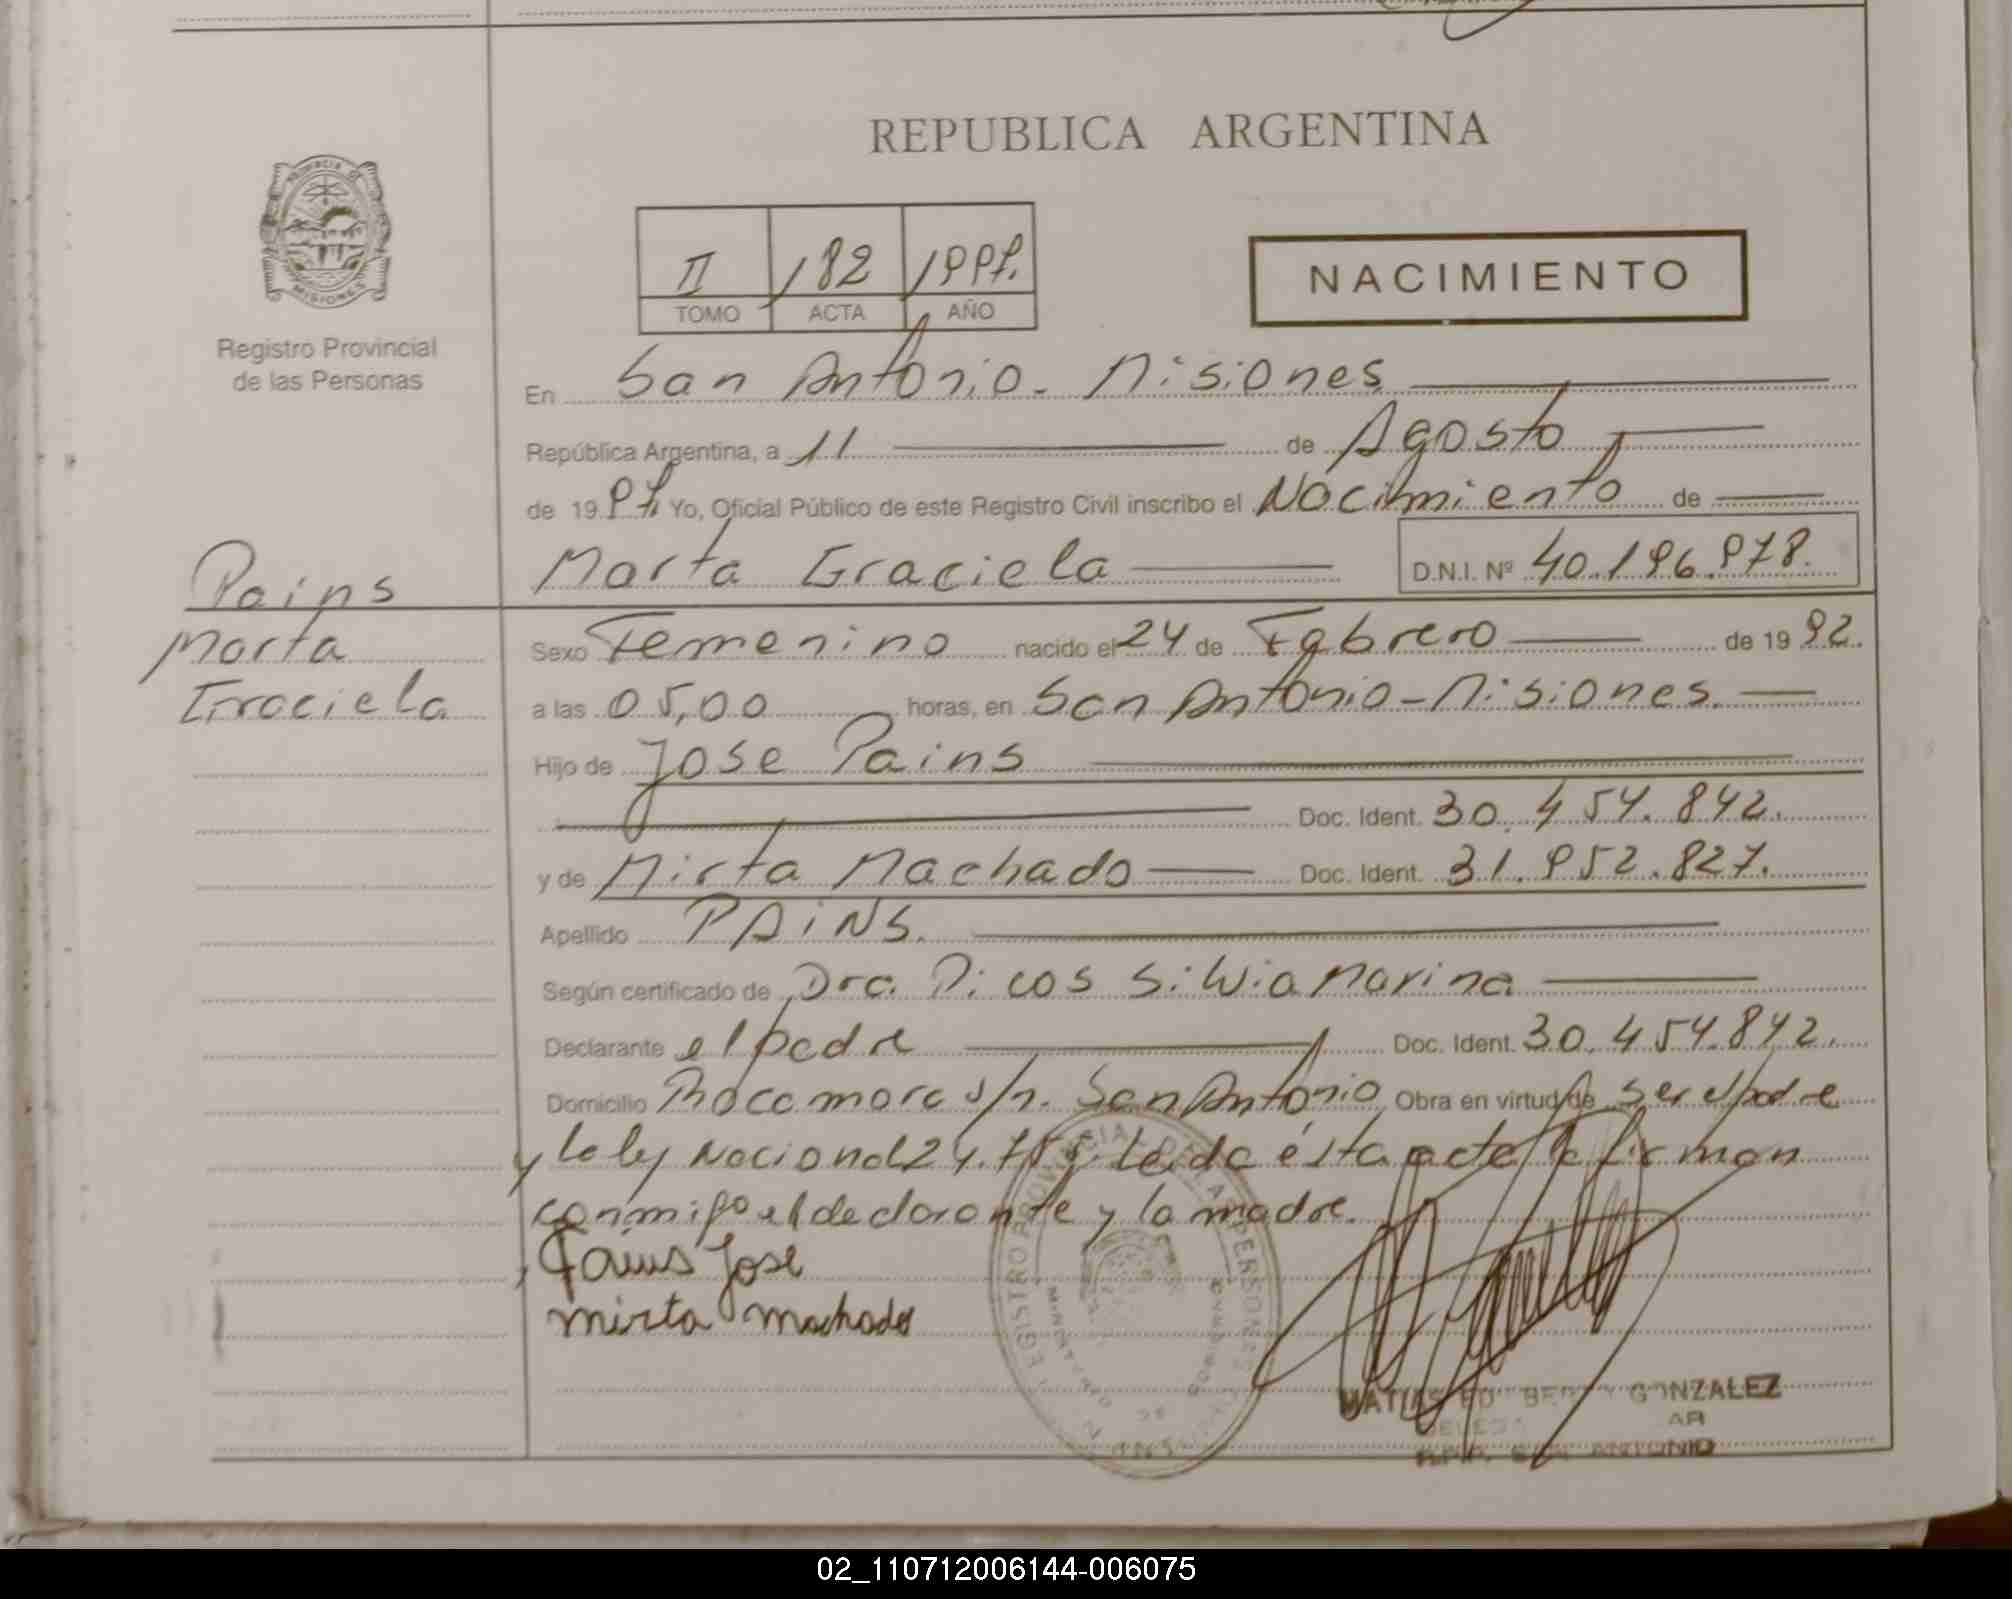 REPUBLICA ARGENTINA
PROVINCIA DE
MISIONES
Registro Provincial
de las Personas
II 182 1997.
TOMO ACTA AÑO
NACIMIENTO
En San Antonio - Misiones
República Argentina, a 11 de Agosto
de 19 97 Yo, Oficial Público de este Registro Civil inscribo el Nacimiento de
Marta Graciela D.N.I. Nº 40.196.978.
Pains
Marta
Graciela
Sexo Femenino nacido el 24 de Febrero de 19 92.
a las 05,00 horas, en San Antonio - Misiones.
Hijo de Jose Pains
Doc. Ident. 30.454.842.
y de Mirta Machado Doc. Ident. 31.952.827.
Apellido PAiNS.
Según certificado de Dra. Silvia Marina
Declarante el padre Doc. Ident. 30.454.842.
Domicilio Rocamora s/n. San Antonio Obra en virtud de ser el padre
y la ley Nacional 24.755. Leida ésta acta la firman
conmigo el declarante y la madre.
Pains Jose
mirta machado
REGISTRO PROVINCIAL DE LAS PERSONAS
MINISTERIO DE GOBIERNO
MATIAS GONZALEZ
R.P.P. SAN ANTONIO
02_110712006144-006075